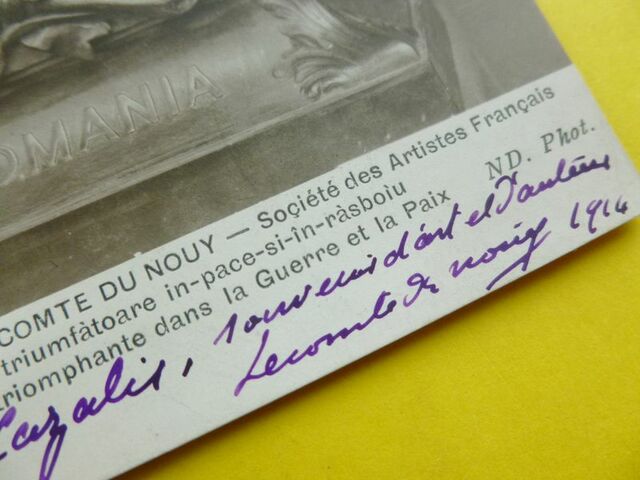 OMANIA
COMTE DU NOUY — Société des Artistes Français
triumfàtoare in-pace-si-în-ràsboiu
triomphante dans la Guerre et la Paix
ND. Phot.
Cazalis, souvenir d'art et d'auteur
Lecomte du nouÿ 1914